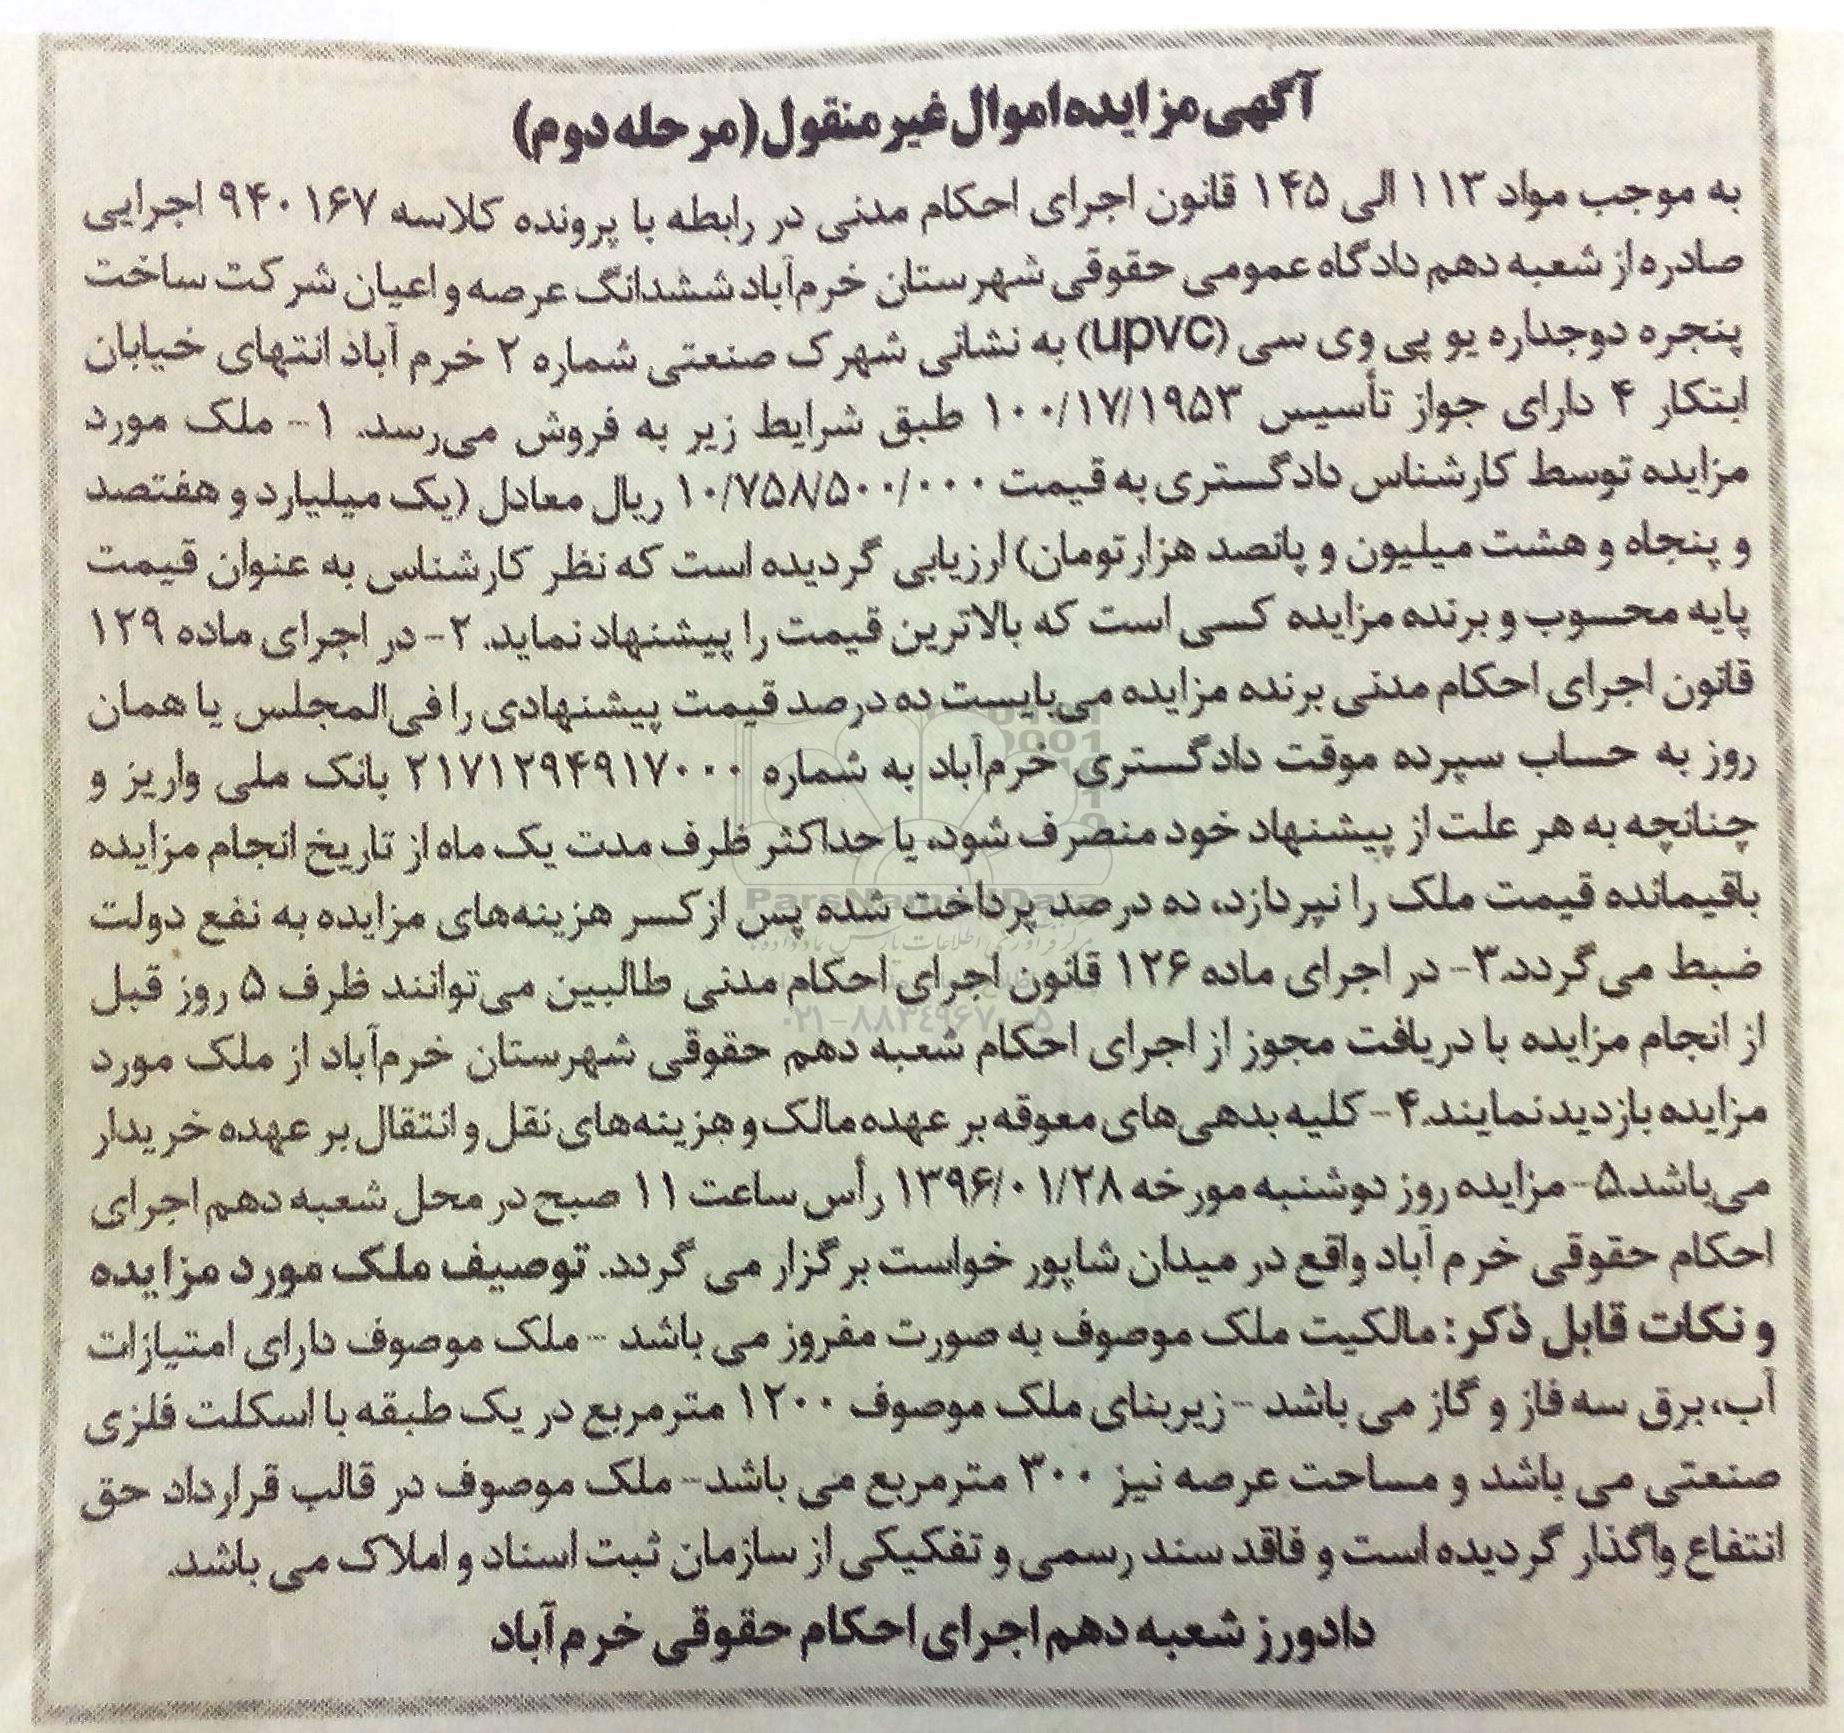 آگهی مزایده اموال غیر منقول (مرحله دوم)
به موجب مواد ۱۱۳ الی ۱۴۵ قانون اجرای احکام مدنی در رابطه با پرونده کلاسه ۹۴۰۱۶۷ اجرایی
صادره از شعبه دهم دادگاه عمومی حقوقی شهرستان خرم‌آباد ششدانگ عرصه و اعیان شرکت ساخت
پنجره دوجداره یو پی وی سی (upvc) به نشانی شهرک صنعتی شماره ۲ خرم آباد انتهای خیابان
ابتکار ۴ دارای جواز تأسیس ۱۰۰/۱۷/۱۹۵۳ طبق شرایط زیر به فروش می‌رسد. ۱- ملک مورد
مزایده توسط کارشناس دادگستری به قیمت ۱۰/۷۵۸/۵۰۰/۰۰۰ ریال معادل (یک میلیارد و هفتصد
و پنجاه و هشت میلیون و پانصد هزار تومان) ارزیابی گردیده است که نظر کارشناس به عنوان قیمت
پایه محسوب و برنده مزایده کسی است که بالاترین قیمت را پیشنهاد نماید. ۲- در اجرای ماده ۱۲۹
قانون اجرای احکام مدنی برنده مزایده می‌بایست ده درصد قیمت پیشنهادی را فی‌المجلس یا همان
روز به حساب سپرده موقت دادگستری خرم‌آباد به شماره ۲۱۷۱۲۹۴۹۱۷۰۰۰ بانک ملی واریز و
چنانچه به هر علت از پیشنهاد خود منصرف شود، یا حداکثر ظرف مدت یک ماه از تاریخ انجام مزایده
باقیمانده قیمت ملک را نپردازد، ده درصد پرداخت شده پس از کسر هزینه‌های مزایده به نفع دولت
ParsNamadData
ضبط می‌گردد. ۳- در اجرای ماده ۱۲۶ قانون اجرای احکام مدنی طالبین می‌توانند ظرف ۵ روز قبل
۰۲۱-۸۸۳۴۹۶۷۰-۵
از انجام مزایده با دریافت مجوز از اجرای احکام شعبه دهم حقوقی شهرستان خرم‌آباد از ملک مورد
مزایده بازدید نمایند. ۴- کلیه بدهی‌های معوقه بر عهده مالک و هزینه‌های نقل و انتقال بر عهده خریدار
می‌باشد. ۵- مزایده روز دوشنبه مورخه ۱۳۹۶/۰۱/۲۸ رأس ساعت ۱۱ صبح در محل شعبه دهم اجرای
احکام حقوقی خرم آباد واقع در میدان شاپور خواست برگزار می گردد. توصیف ملک مورد مزایده
و نکات قابل ذکر: مالکیت ملک موصوف به صورت مفروز می باشد - ملک موصوف دارای امتیازات
آب، برق سه فاز و گاز می باشد - زیربنای ملک موصوف ۱۲۰۰ مترمربع در یک طبقه با اسکلت فلزی
صنعتی می باشد و مساحت عرصه نیز ۳۰۰ مترمربع می باشد- ملک موصوف در قالب قرارداد حق
انتفاع واگذار گردیده است و فاقد سند رسمی و تفکیکی از سازمان ثبت اسناد و املاک می باشد.
دادورز شعبه دهم اجرای احکام حقوقی خرم آباد